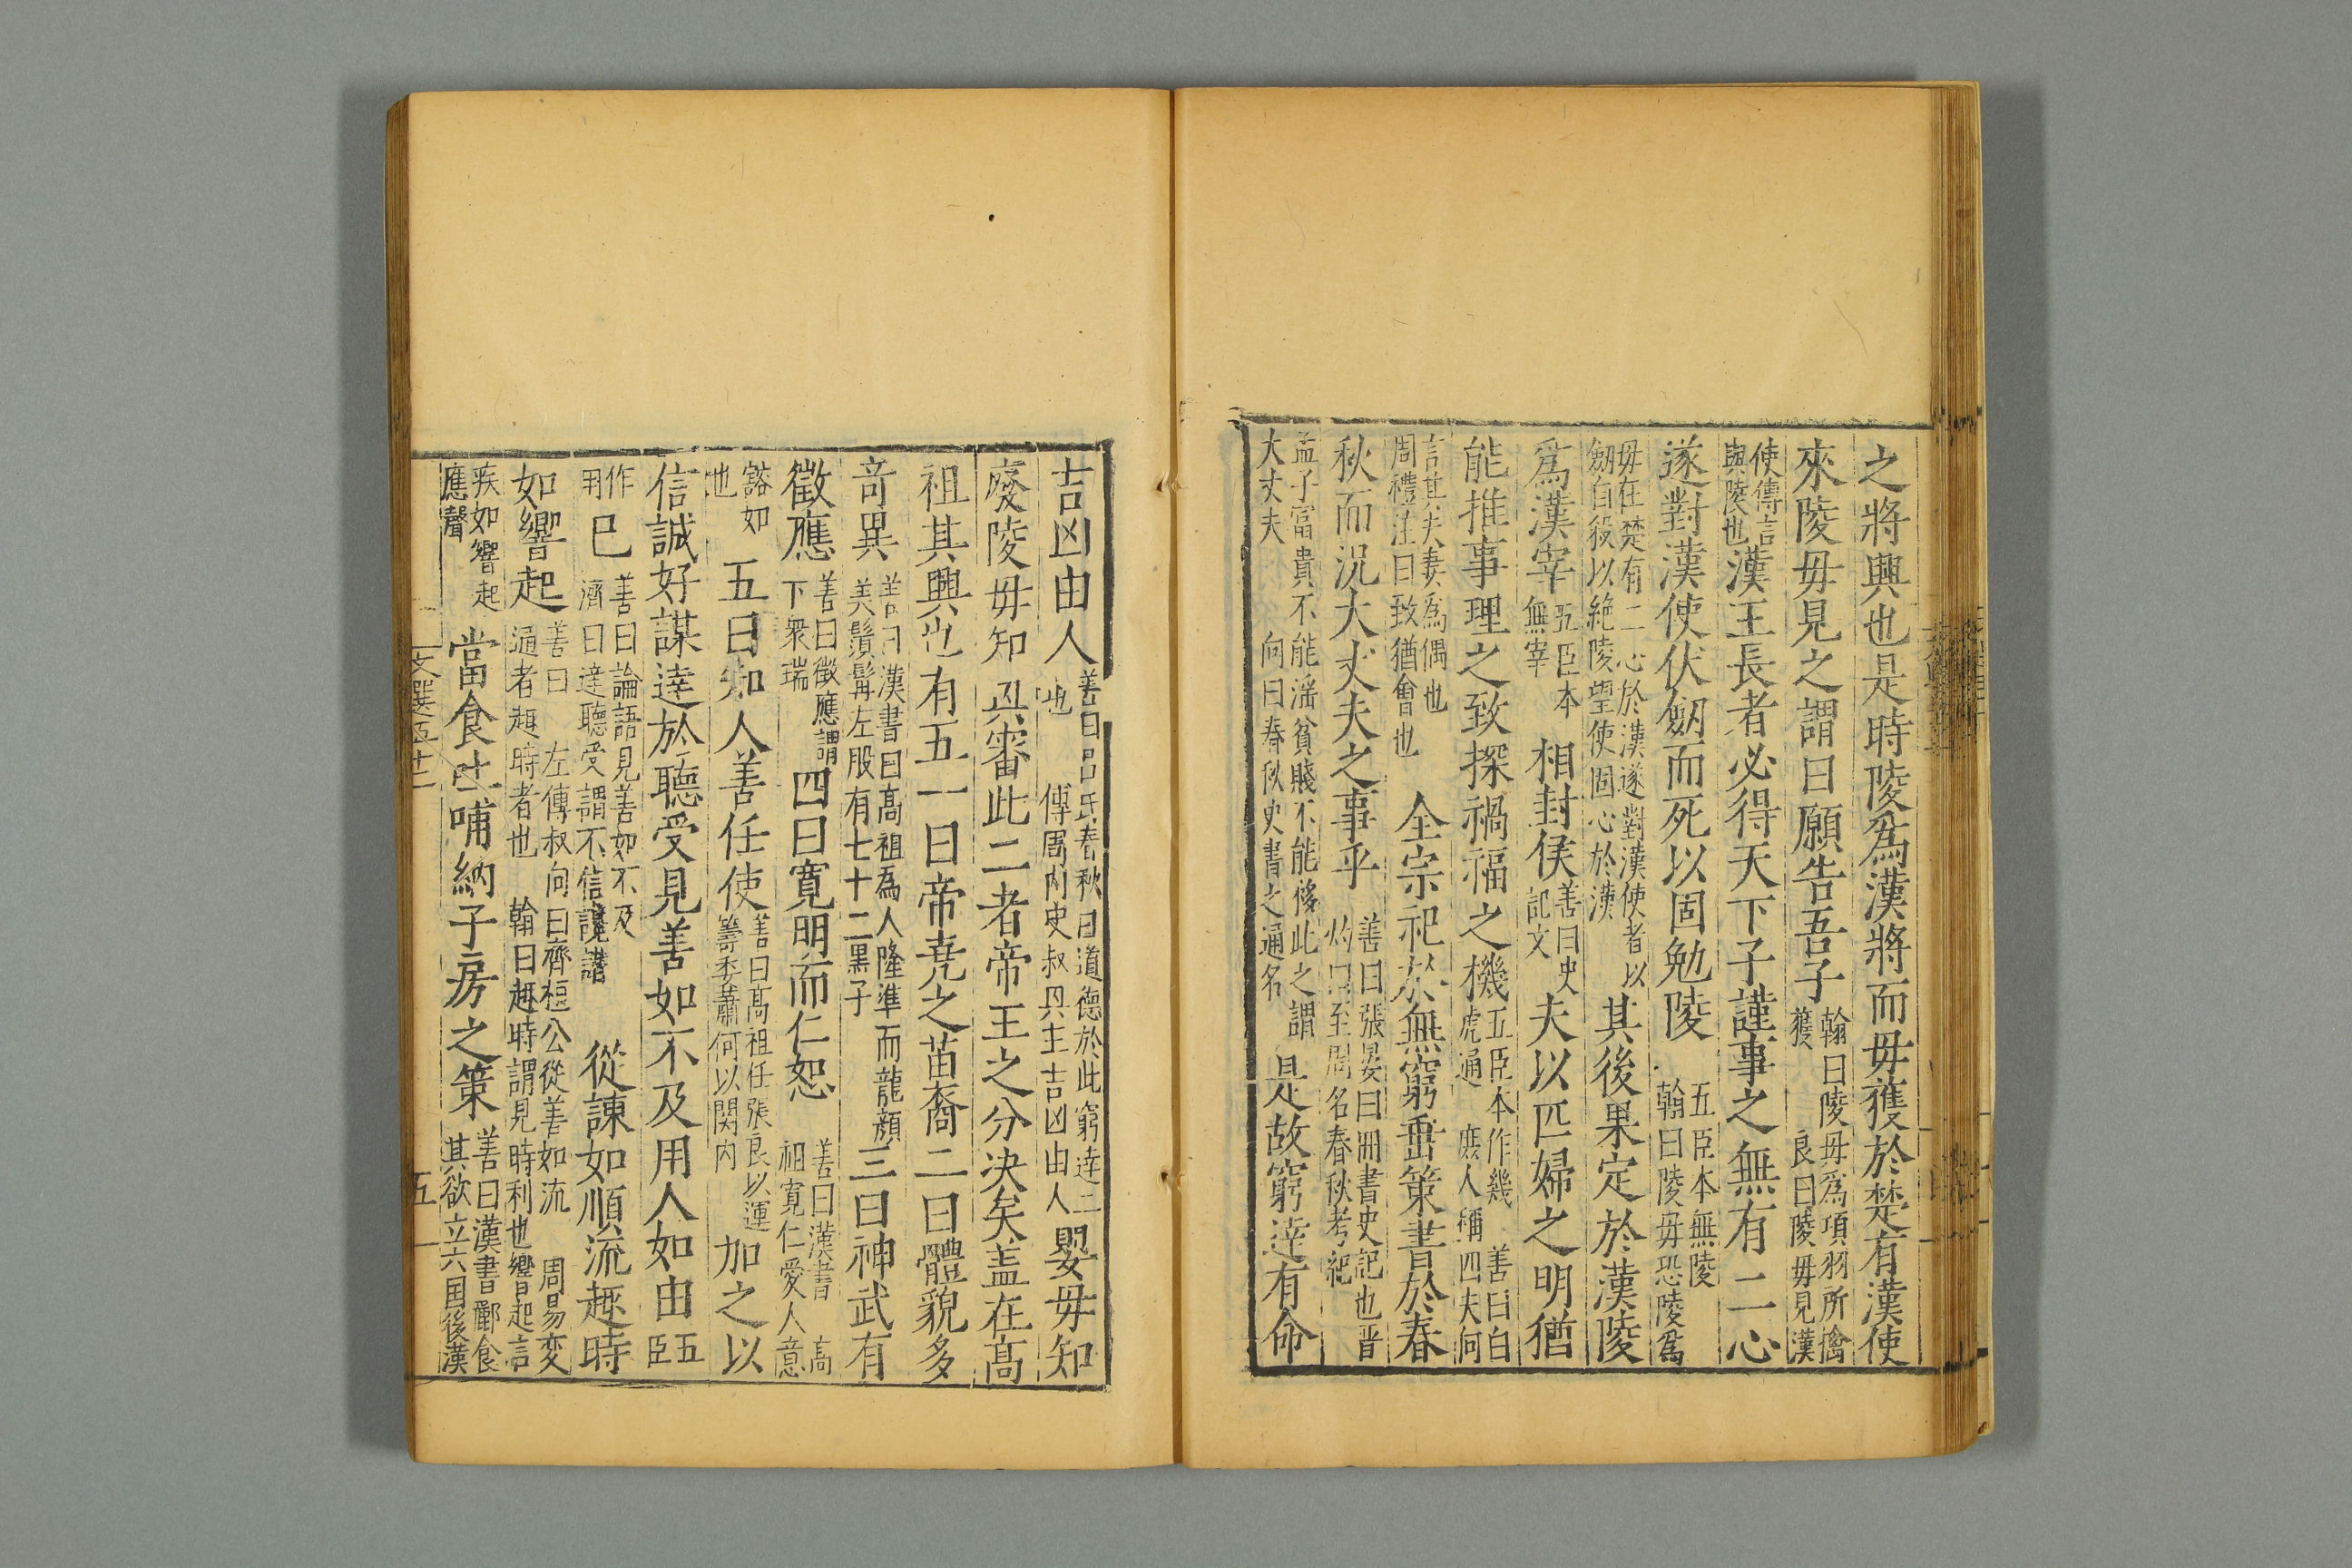 之將興也是時陵爲漢將而毋獲於楚有漢使
來陵毋見之謂曰願告吾子翰曰陵毋爲項羽所擒獲　良曰陵毋見漢
使傳言與陵也漢王長者必得天下子謹事之無有二心
遂對漢使伏劒而死以固勉陵五臣本無陵　翰曰陵毋恐陵爲
毋在楚有二心於漢遂對漢使者以劒自殺以絶陵望使固心於漢其後果定於漢陵
爲漢宰五臣本無宰相封侯善曰史記文夫以匹婦之明猶
能推事理之致探禍福之機五臣本作幾　善曰白虎通　庶人稱匹夫何
言其夫妻爲偶也周禮注曰致猶會也全宗祀於無窮垂策書於春
秋而況大丈夫之事乎善曰張晏曰冊書史記也晋灼曰至周名春秋考紀
孟子富貴不能滛貧賤不能移此之謂大丈夫　向曰春秋史書之通名是故窮達有命
吉凶由人善曰吕氏春秋曰道德於此窮達二也　傳周内史叔興主吉凶由人嬰毋知
廢陵毋知興審此二者帝王之分決矣盖在髙
祖其興也有五一曰帝尭之苗裔二曰體貌多
竒異善曰漢書曰髙祖爲人隆準而龍顔美鬚髯左股有七十二黒子三曰神武有
徵應善曰徵應謂下衆瑞四曰寛明而仁恕善曰漢書　髙祖寛仁愛人意
豁如也五曰知人善任使善曰髙祖任張良以運籌委蕭何以関内加之以
信誠好謀達於聽受見善如不及用人如由五臣
作用巳善曰論語見善如不及濟曰達聽受謂不信讒譖從諫如順流趣時
如響起善曰　左傳叔向曰齊桓公從善如流　周易変通者趣時者也　翰曰趣時謂見時利也響起言
疾如響起應聲當食吐哺納子房之策善曰漢書酈食其欲立六国後漢
文選五十二　五